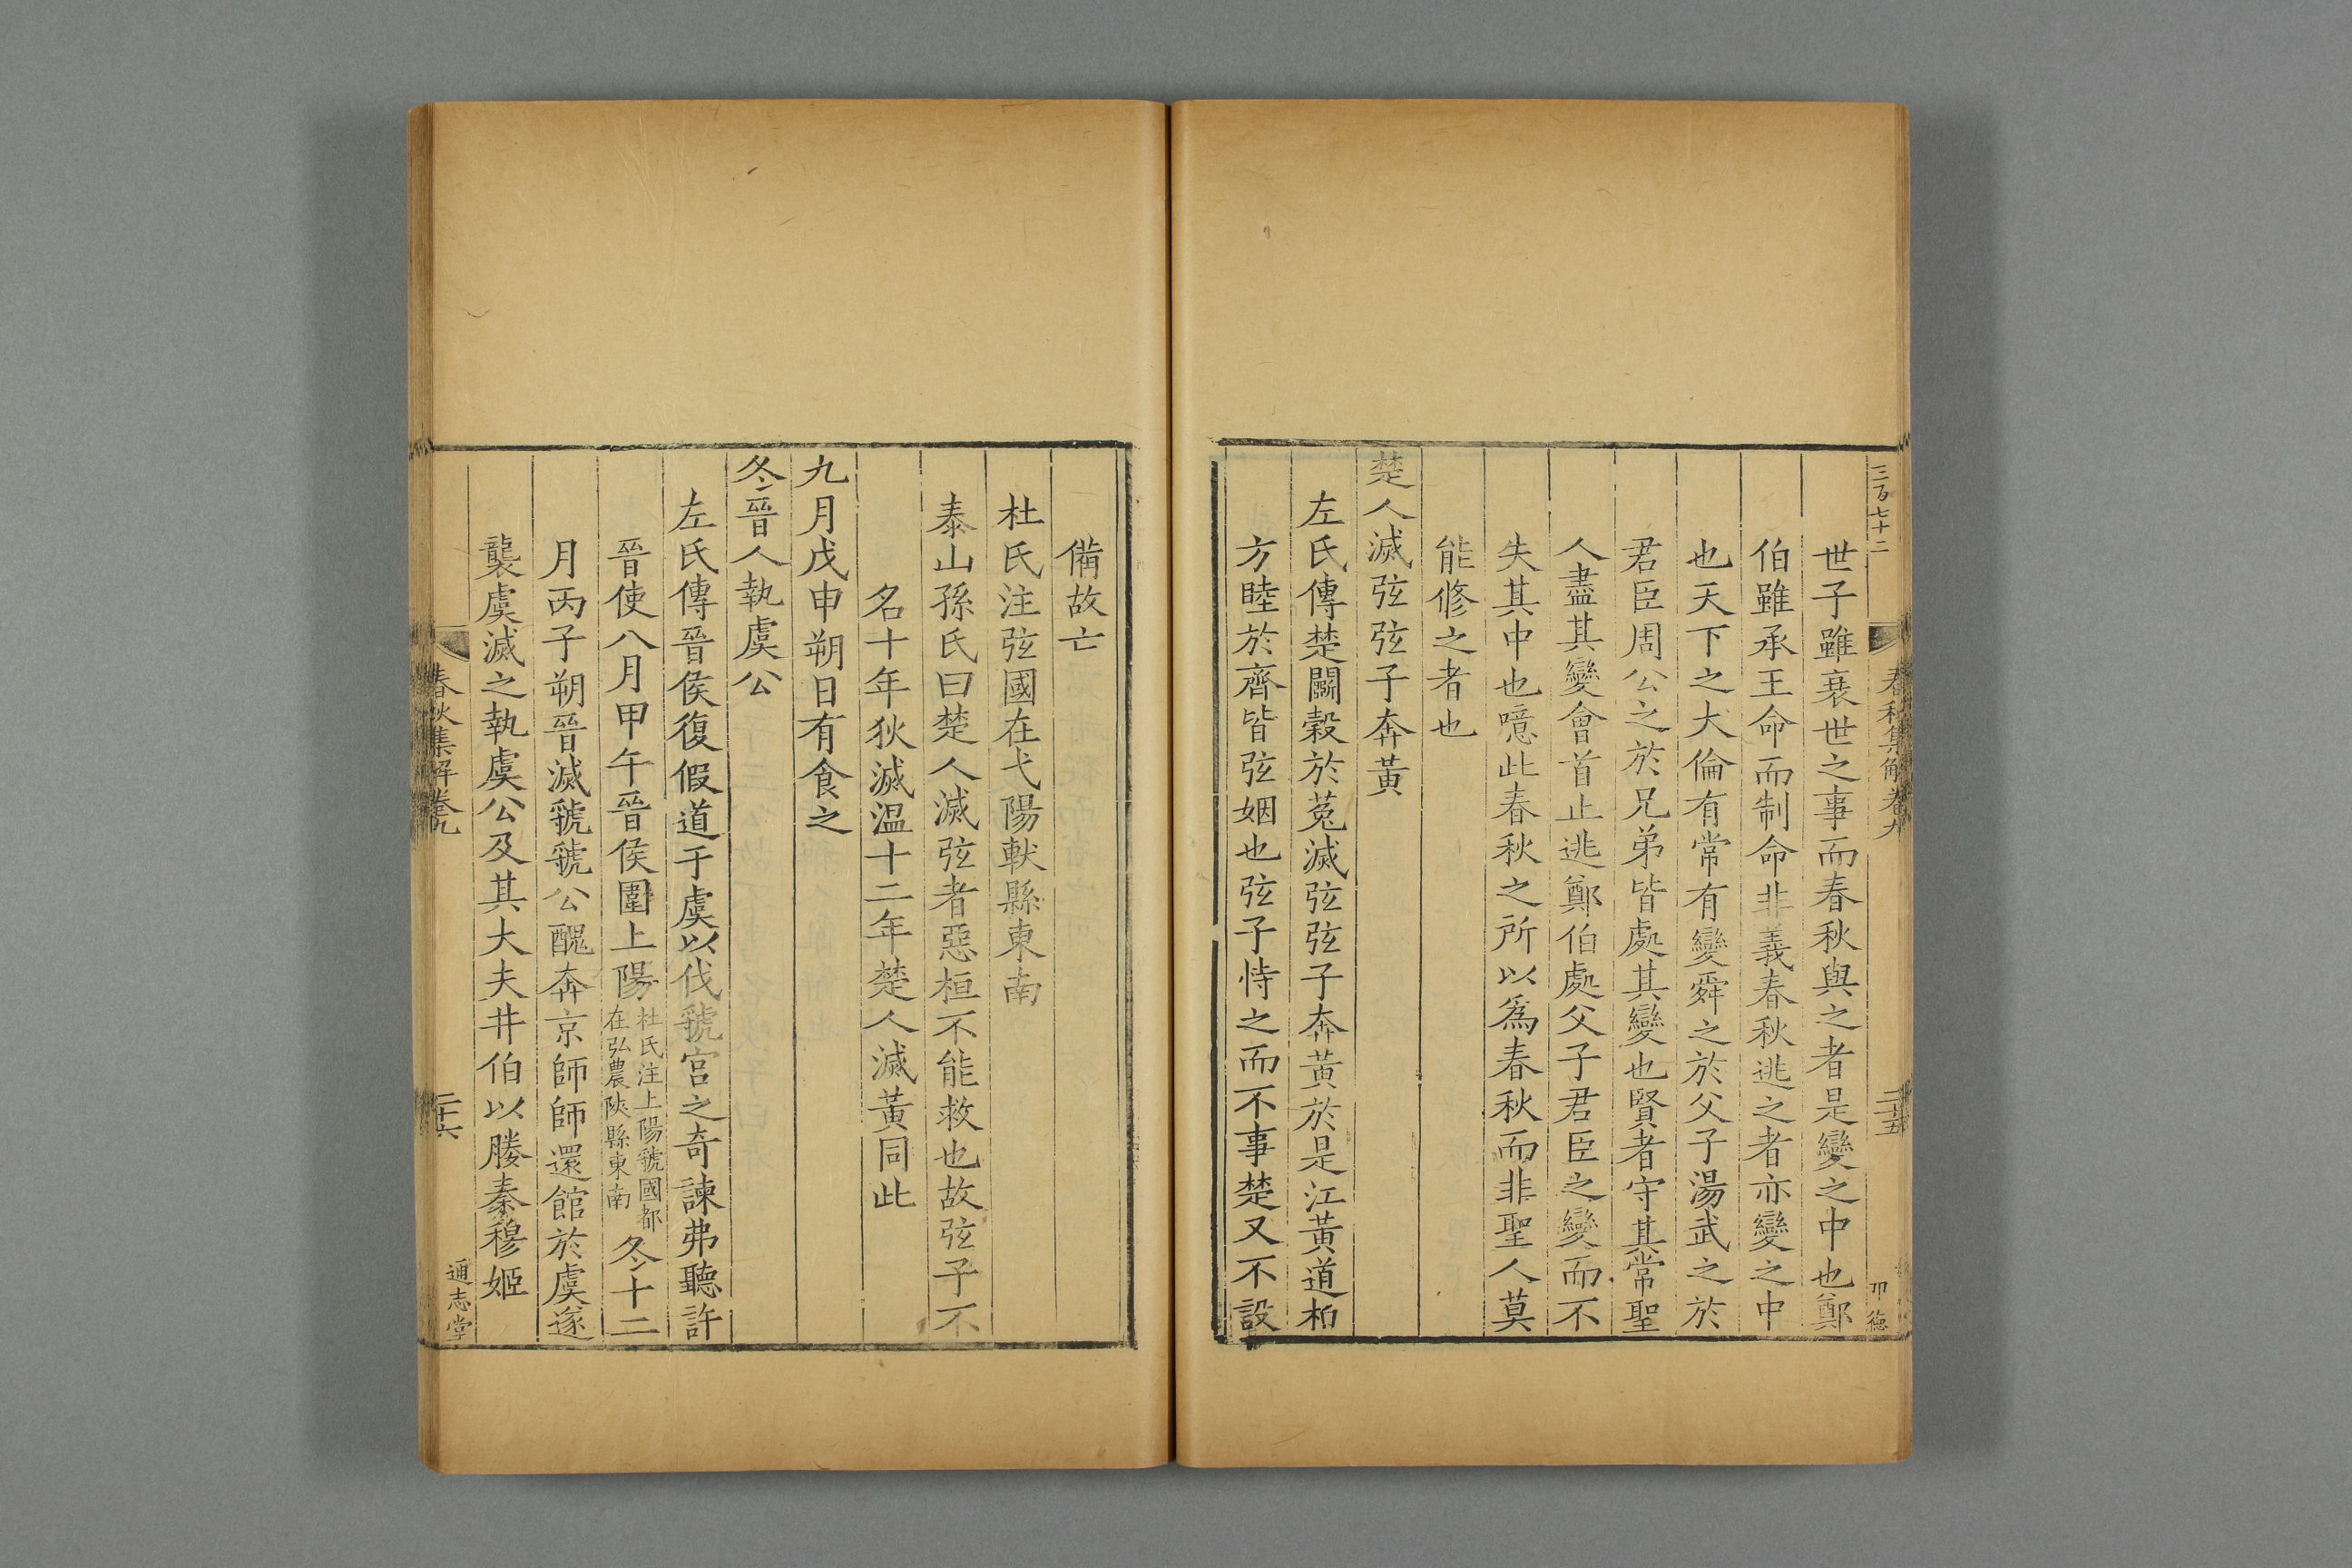 三百七十二
春秋集解卷九
二十五
世子雖衰世之事而春秋與之者是變之中也鄭
伯雖承王命而制命非義春秋逃之者亦變之中
也天下之大倫有常有變舜之於父子湯武之於
君臣周公之於兄弟皆處其變也賢者守其常聖
人盡其變會首止逃鄭伯處父子君臣之變而不
失其中也噫此春秋之所以爲春秋而非聖人莫
能修之者也
楚人滅弦弦子奔黃
左氏傳楚鬭穀於菟滅弦弦子奔黃於是江黃道柏
方睦於齊皆弦姻也弦子恃之而不事楚又不設
備故亡
杜氏注弦國在弋陽軑縣東南
泰山孫氏曰楚人滅弦者惡桓不能救也故弦子不
名十年狄滅溫十二年楚人滅黃同此
九月戊申朔日有食之
冬晉人執虞公
左氏傳晉侯復假道于虞以伐虢宮之奇諫弗聽許
晉使八月甲午晉侯圍上陽杜氏注上陽虢國都在弘農陝縣東南冬十二
月丙子朔晉滅虢虢公醜奔京師師還館於虞遂
襲虞滅之執虞公及其大夫井伯以媵秦穆姬
春秋集解卷九
二十六
通志堂